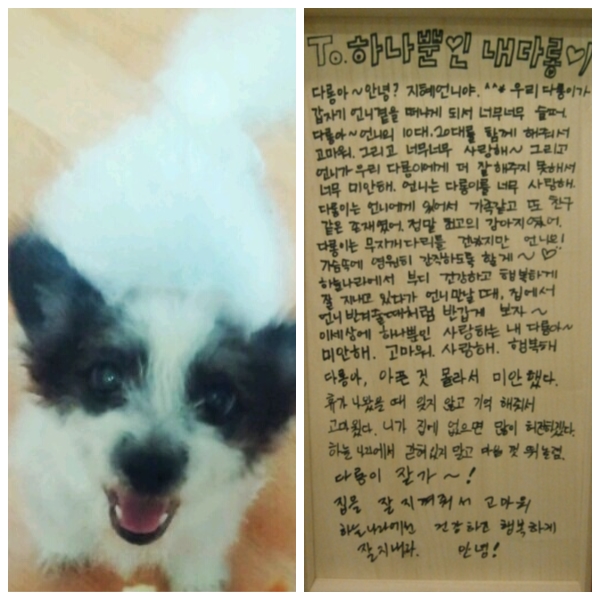 To.하나뿐인 내다롱♡
다롱아~안녕? 지혜언니야. ^^ 우리 다롱이가
갑자기 언니곁을 떠나게 되서 너무너무 슬퍼.
다롱아~언니의 10대,20대를 함께 해줘서
고마워. 그리고 너무너무 사랑해~ 그리고
언니가 우리 다롱이에게 더 잘해주지 못해서
너무 미안해. 언니는 다롱이를 너무 사랑해.
다롱이는 언니에게 있어서 가족같고 또 친구
같은 존재였어. 정말 최고의 강아지였어.
다롱이는 무지개다리를 건넜지만 언니의
가슴속에 영원히 간직하도록 할게~♡
하늘나라에서 부디 건강하고 행복하게
잘 지내고 있다가 언니만날 때, 집에서
언니 반겨줄때처럼 반갑게 보자~
이세상에 하나뿐인 사랑하는 내 다롱아~
미안해. 고마워. 사랑해. 행복해
다롱아, 아픈 것 몰라서 미안했다.
휴가 나왔을 때 잊지 않고 기억 해줘서
고마웠다. 니가 집에 없으면 많이 허전하겠다.
하늘나라에서 갇혀있지 말고 마음 것 뛰놀렴.
다롱이 잘가~!
집을 잘 지켜줘서 고마워
하늘나라에선 건강하고 행복하게
잘지내라. 안녕!